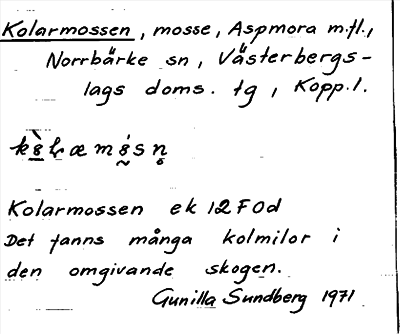 Kolarmossen, mosse, Aspmora m.fl.,
Norrbärke sn, Västerbergs-
lags doms. tg, Kopp.l.
Kolarmossen ek 12F0d
Det fanns många kolmilor i
den omgivande skogen.
Gunilla Sundberg 1971